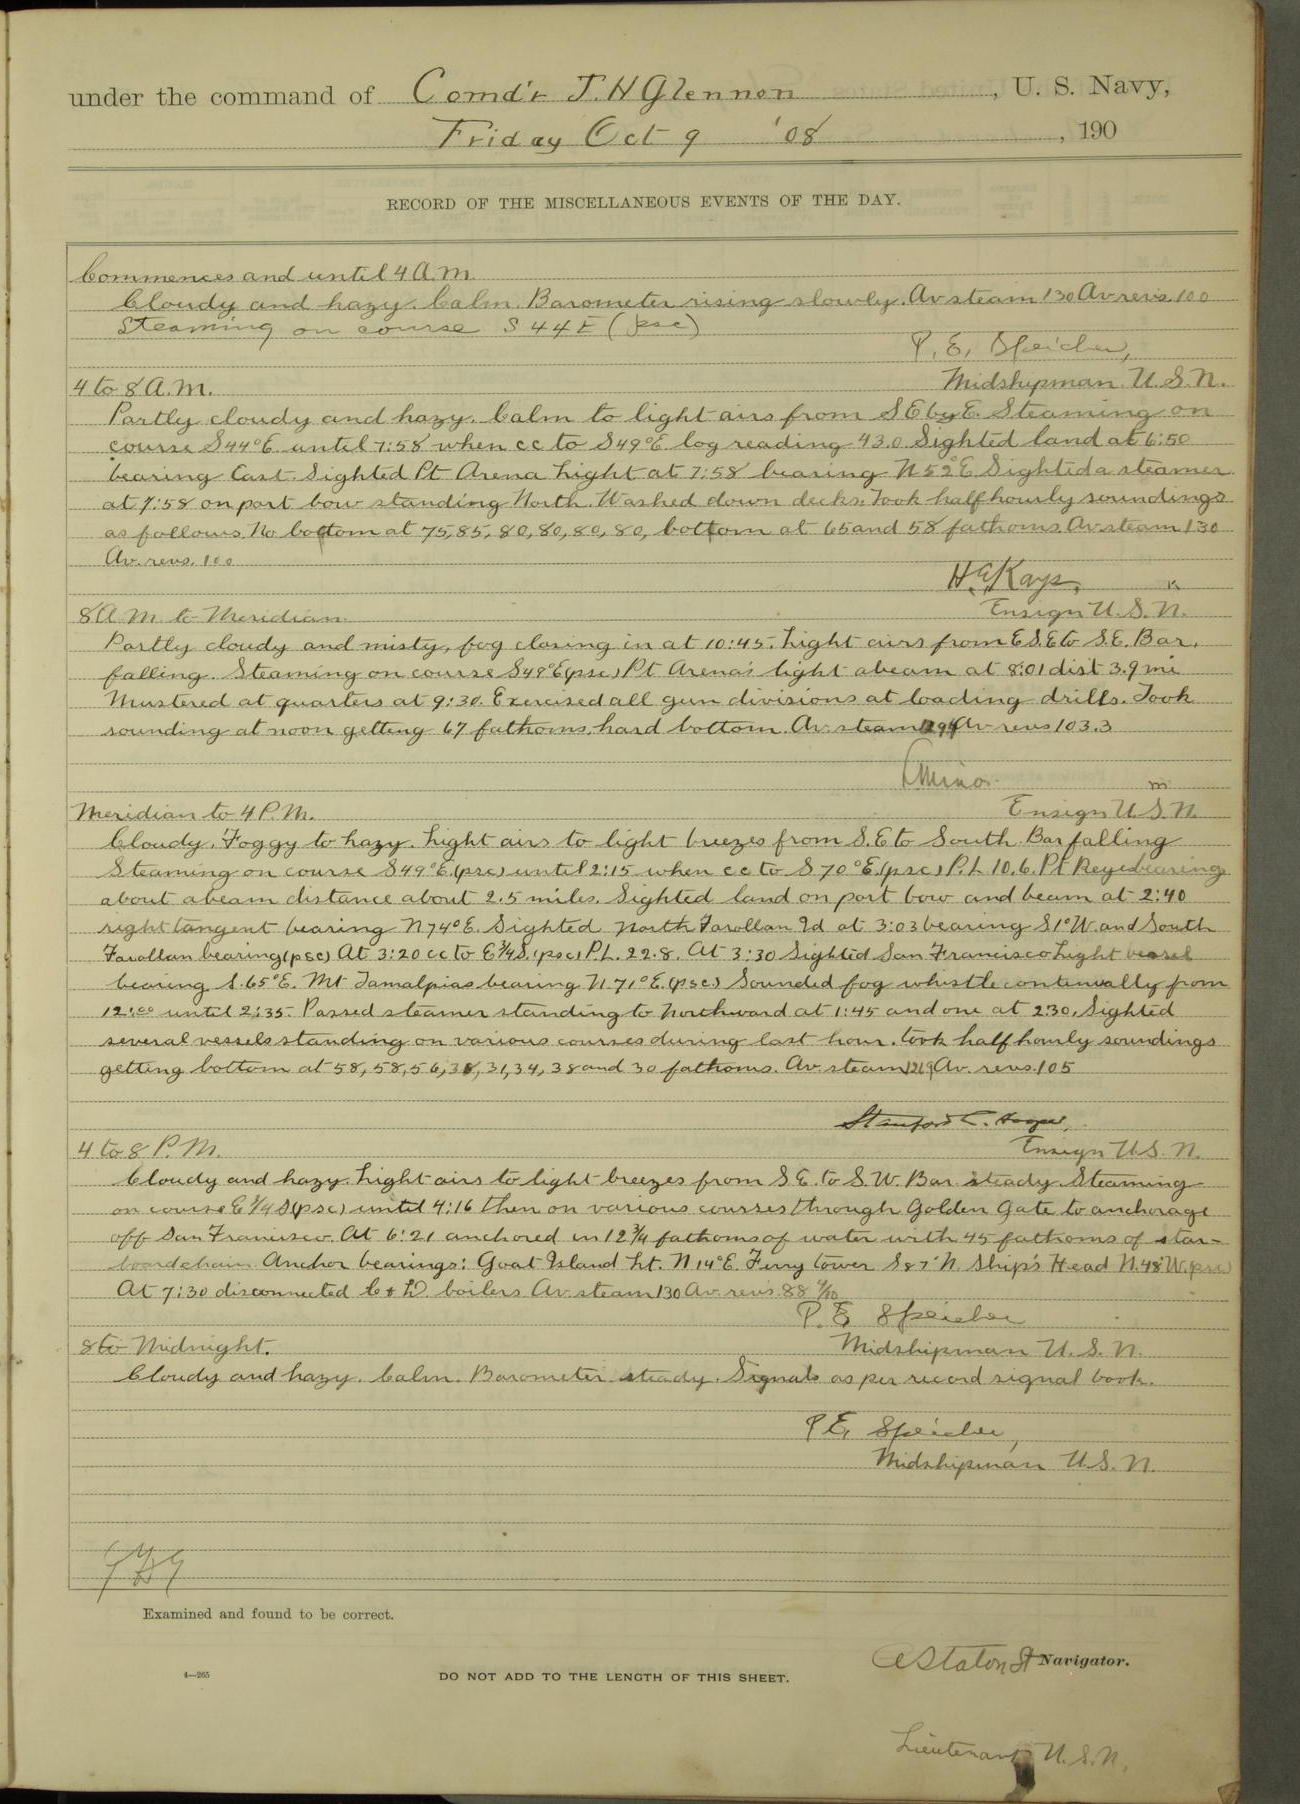 under the command of Comd'r J. H Glennon, U. S. Navy,
Friday Oct 9 '08, 190
RECORD OF THE MISCELLANEOUS EVENTS OF THE DAY.
Commences and until 4 A.M.
Cloudy and hazy. Calm. Barometer rising slowly. Av steam 130 Av revs. 100
Steaming on course S 44 E (psc)
P. E. Speicher,
4 to 8 A.M.
Midshipman U.S.N.
Partly cloudy and hazy. Calm to light airs from SE by E. Steaming on
course S44°E until 7:58 when cc to S49°E log reading 43.0 Sighted land at 6:50
bearing East. Sighted Pt Arena Light at 7:58 bearing N52°E Sighted a steamer
at 7:58 on port bow standing North. Washed down decks. Took half hourly soundings
as follows. No bottom at 75, 85, 80, 80, 80, 80, bottom at 65 and 58 fathoms. Av. steam 130
Av. revs. 100
H. E. Kays,
8 A M to Meridian.
Ensign U.S.N.
Partly cloudy and misty, fog closing in at 10:45. Light airs from E.S.E to S.E. Bar.
falling. Steaming on course S49°E (psc) Pt Arena's light abeam at 8:01 dist 3.9 mi
Mustered at quarters at 9:30. Exercised all gun divisions at loading drills. Took
sounding at noon getting 67 fathoms. hard bottom. Av. steam 129.4 Av revs 103.3
Meridian to 4 P.M.
Ensign U.S.N.
Cloudy, Foggy to hazy. Light airs to light breezes from S.E to South. Bar falling
Steaming on course S49°E. (psc) until 2:15 when cc to S 70°E. (psc) P.L 10.6. Pt Reyes bearing
about abeam distance about 2.5 miles. Sighted land on port bow and beam at 2:40
right tangent bearing N74°E. Sighted North Farollan Id at 3:03 bearing S1°W. and South
Farollan bearing (psc) At 3:20 cc to E¾S. (psc) P.L. 22.8. At 3:30 Sighted San Francisco Light vessel
bearing S.65°E. Mt Tamalpias bearing N.71°E. (psc) Sounded fog whistle continually from
12:00 until 2:35. Passed steamer standing to Northward at 1:45 and one at 2:30, Sighted
several vessels standing on various courses during last hour. took half hourly soundings
getting bottom at 58, 58, 56, 38, 31, 34, 38 and 30 fathoms. Av. steam 121.9 Av. revs. 105
Stanford C. Hooper,
4 to 8 P.M.
Ensign U.S. N.
Cloudy and hazy. Light airs to light breezes from S E. to S.W. Bar. steady. Steaming
on course E¾S (psc) until 4:16 then on various courses through Golden Gate to anchorage
off San Francisco. At 6:21 anchored in 12¾ fathoms of water with 45 fathoms of star-
board chain. Anchor bearings: Goat Island Lt. N 14°E. Ferry tower S 87° N. Ship's Head N.48°W. (psc)
At 7:30 disconnected C & D boilers Av. steam 130 Av. revs. 88 4/10
P. E. Speicher
8 to Midnight.
Midshipman U. S. N.
Cloudy and hazy. Calm. Barometer steady. Signals as per record signal book.
P E. Speicher,
Midshipman U.S.N.
JHG
Examined and found to be correct.
A Staton Navigator.
4—265
DO NOT ADD TO THE LENGTH OF THIS SHEET.
Lieutenant U.S.N.